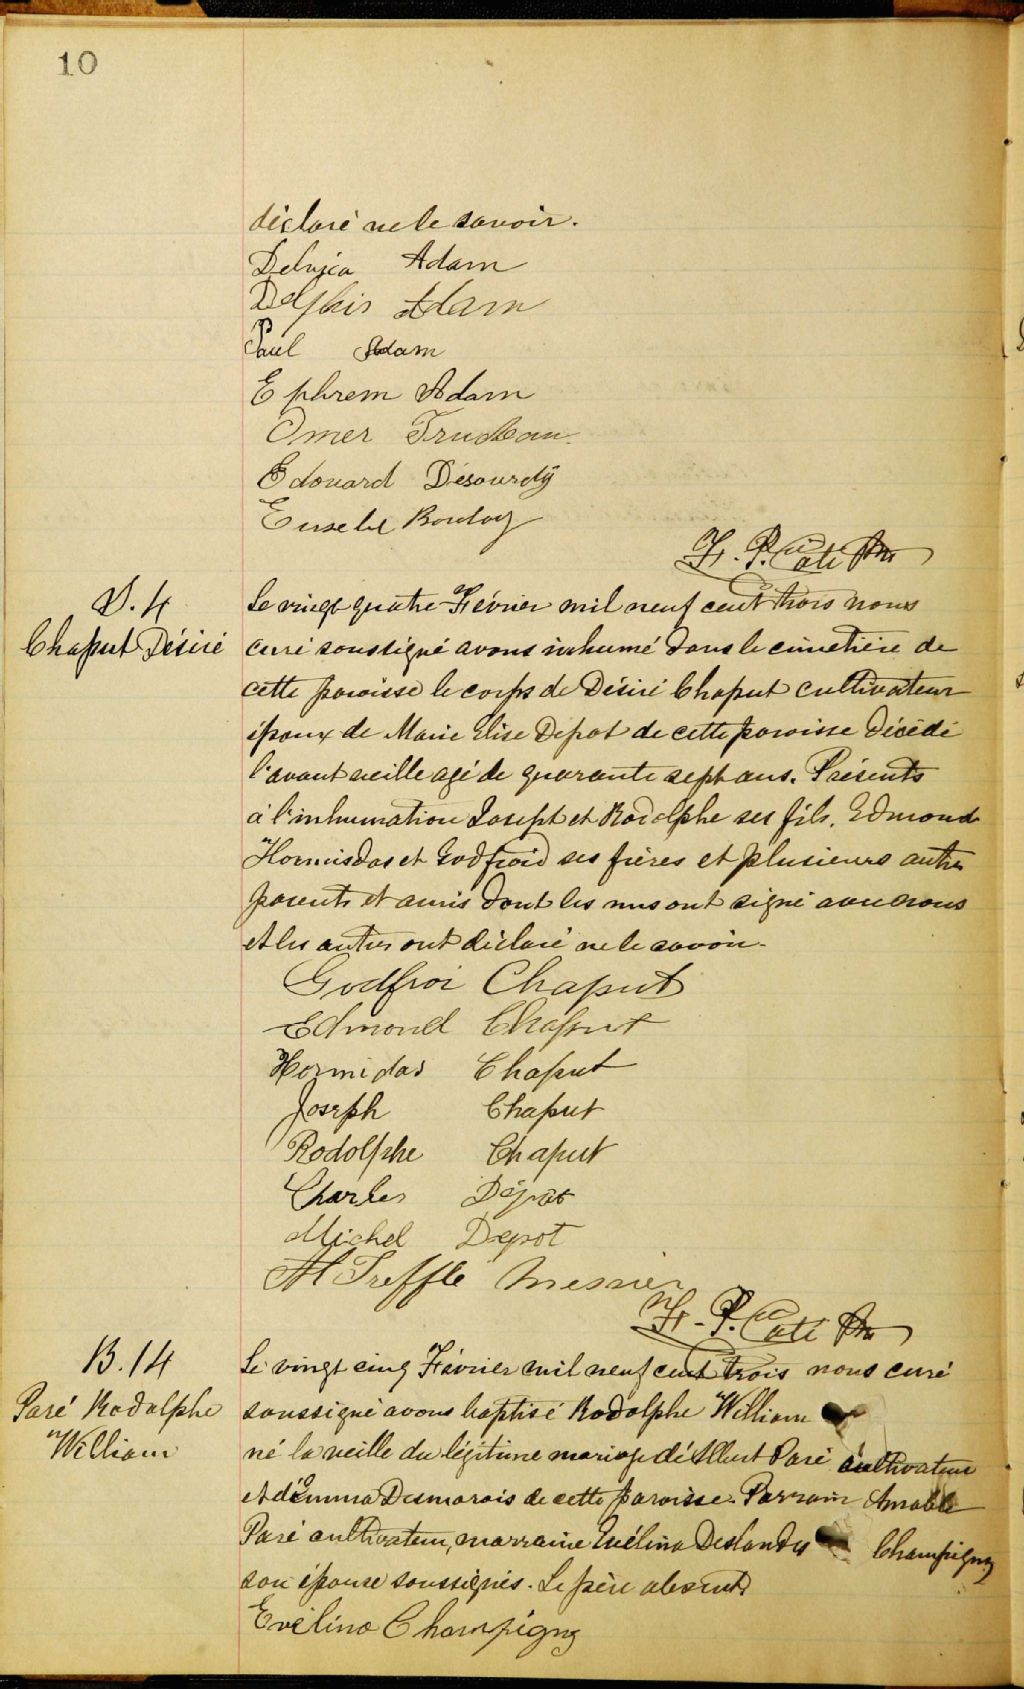 10
déclaré ne le savoir.
Adam
Delphis Adam
Paul Adam
Ephrem Adam
Omer Trudeau
Edouard Désourdy
Eusebe
F. P. Côté Ptre
S. 4
Chaput Désiré
Le vingt quatre Février mil neuf cent trois nous
curé soussigné avons inhumé dans le cimetière de
cette paroisse le corps de Désiré Chaput cultivateur
époux de Marie Elise Depot de cette paroisse décédé
l'avant veille agé de quarante sept ans. Présents
à l'inhumation Joseph et Rodolphe ses fils, Edmond
Hormisdas et Godfroid ses frères et plusieurs autres
parents et amis dont les uns ont signé avec nous
et les autres ont déclaré ne le savoir.
Godfroi Chaput
Edmond Chaput
Hormidas Chaput
Joseph Chaput
Rodolphe Chaput
Charles Dépot
Michel Depot
Treffle Messier
F. P. Côté Ptre
B. 14
Paré Rodolphe
William
Le vingt cinq Février mil neuf cent trois nous curé
soussigné avons baptisé Rodolphe William
né la veille du légitime mariage de Albert Paré cultivateur
et d'Emma Desmarais de cette paroisse. Parrain Amable
Paré cultivateur, marraine Evélina Deslandes Champigny
son épouse soussignés. Le père absent.
Evélina Champigny